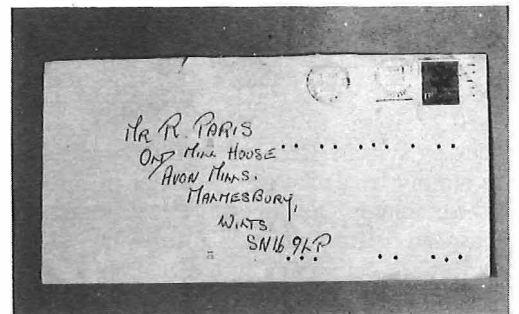 Mr R. PARIS
OLD MILL HOUSE
AVON MILLS.
MALMESBURY,
WILTS
SN16 9LP